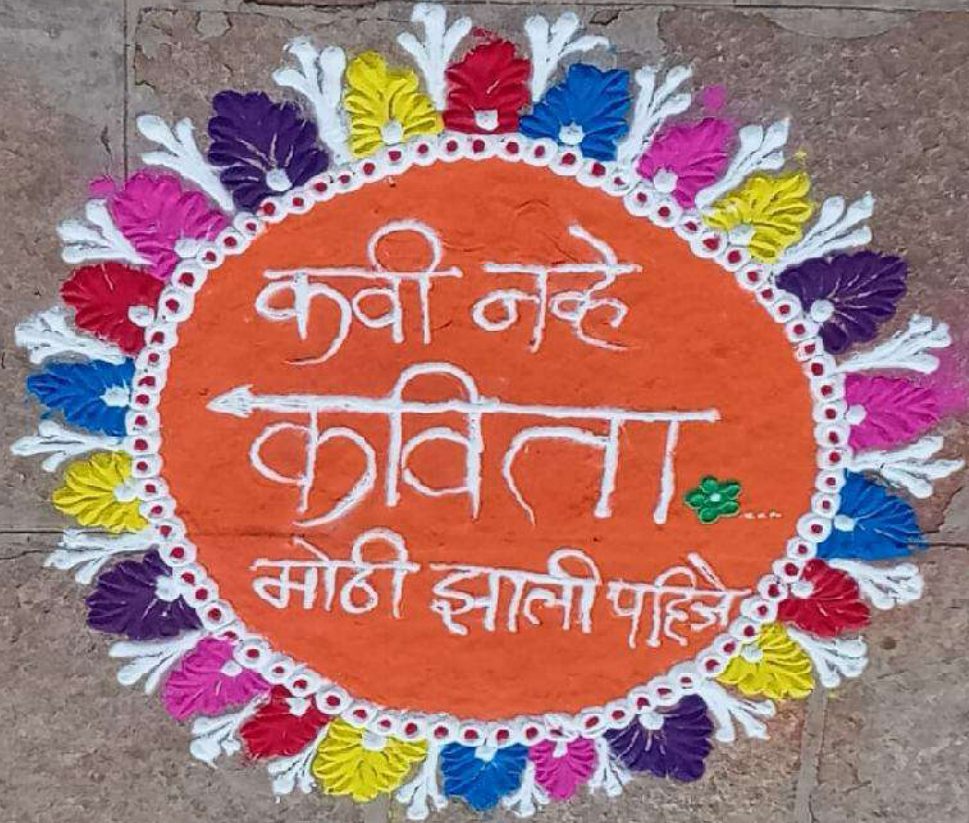 कवी नव्हे
कविता....
मोठी झाली पहिजे